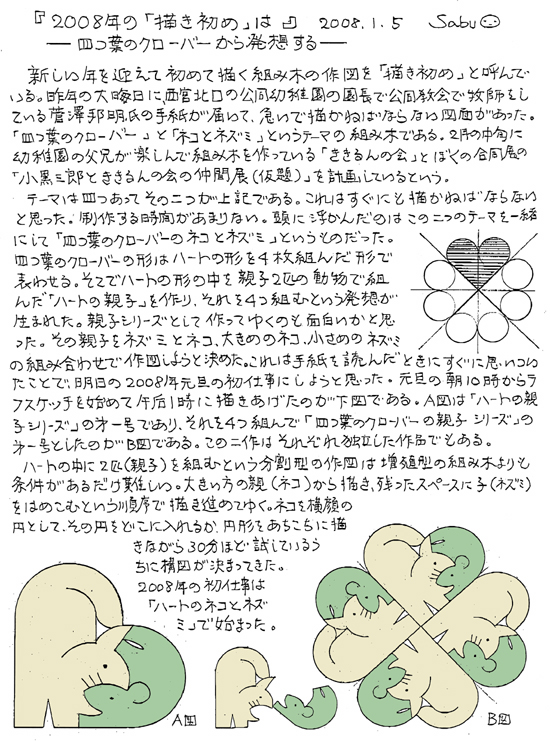 『2008年の「描き初め」は』 2008.1.5 Sabu
―四つ葉のクローバーから発想する―
新しい年を迎えて初めて描く組み木の作図を「描き初め」と呼んで
いる。昨年の大晦日に、西宮北口の公同幼稚園の園長で公同教会で牧師をし
ている菅澤邦明氏の手紙が届いて、急いで描かねばならない図面があった。
「四つ葉のクローバー」と「ネコとネズミ」というテーマの組み木である。2月の中旬に
幼稚園の父兄が楽しんで組み木を作っている「きるきんの会」とぼくの合同展の
「小黒三郎ときるきんの会の仲間展(仮題)」を計画しているという。
テーマは四つあってその二つが上記である。これはすぐにも描かねばならない
と思った。制作する時間があまりない。頭に浮かんだのはこの二つのテーマを一緒
にして「四つ葉のクローバーのネコとネズミ」というものだった。
四つ葉のクローバーの形はハートの形を4枚組んだ形で
表わせる。そこでハートの形の中を親子2匹の動物で組
んだ「ハートの親子」を作り、それを4つ組むという発想が
生まれた。親子シリーズとして作ってゆくのも面白いかと思
った。その親子をネズミとネコ、大きめのネコ、小さめのネズミ
の組み合わせで作図しようと決めた。これは手紙を読んだときにすぐに思いつい
たことで、明日の2008年元旦の初仕事にしようと思った。元旦の朝10時からラ
フスケッチを始めて午后1時に描きあげたのが下図である。A図は「ハートの親
子シリーズ」の第一号であり、それを4つ組んで「四つ葉のクローバーの親子シリーズ」の
第一号としたのがB図である。この二作はそれぞれ独立した作品でもある。
ハートの中に2匹(親子)を組むという分割型の作図は増殖型の組み木よりも
条件があるだけ難しい。大きい方の親(ネコ)から描き、残ったスペースに子(ネズミ)
をはめこむという順序で描き進めてゆく。ネコを横顔の
円として、その円をどこに入れるか、円形をあちこちに描
きながら30分ほど試しているう
ちに構図が決まってきた。
2008年の初仕事は
「ハートのネコとネズ
ミ」で始まった。
A図
B図